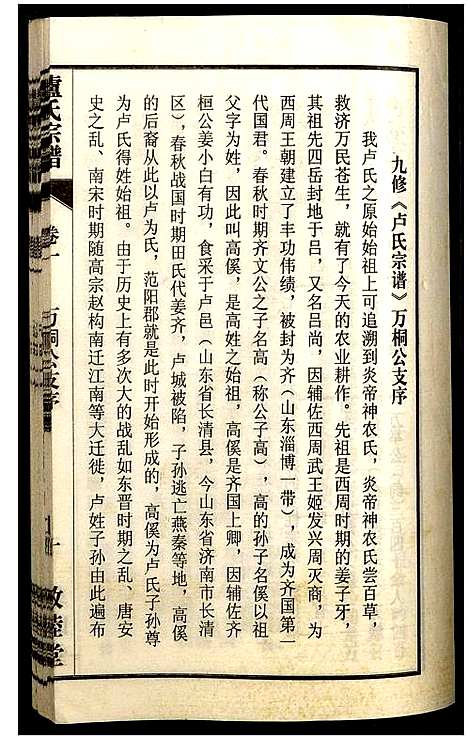 九修《卢氏宗谱》万桐公支序
我卢氏之原始始祖上可追溯到炎帝神农氏，炎帝神农氏尝百草，
救济万民苍生，就有了今天的农业耕作。先祖是西周时期的姜子牙，
其祖先四岳封地于吕，又名吕尚，因辅佐西周武王姬发兴周灭商，为
西周王朝建立了丰功伟绩，被封为齐（山东淄博一带），成为齐国第一
代国君。春秋时期齐文公之子名高（称公子高），高的孙子名傒以祖
父字为姓，因此叫高傒，是高姓之始祖，高傒是齐国上卿，因辅佐齐
桓公姜小白有功，食采于卢邑（山东省长清县，今山东省济南市长清
区），春秋战国时期田氏代姜齐，卢城被陷，子孙逃亡燕秦等地，高傒
的后裔从此以卢为氏，范阳郡就是此时开始形成的，高傒为卢氏子孙尊
为卢氏得姓始祖。由于历史上有多次大的战乱如东晋时期之乱、唐安
史之乱、南宋时期随高宗赵构南迁江南等大迁徙，卢姓子孙由此遍布
盧氏宗谱
卷一
万桐公支序
敦睦堂